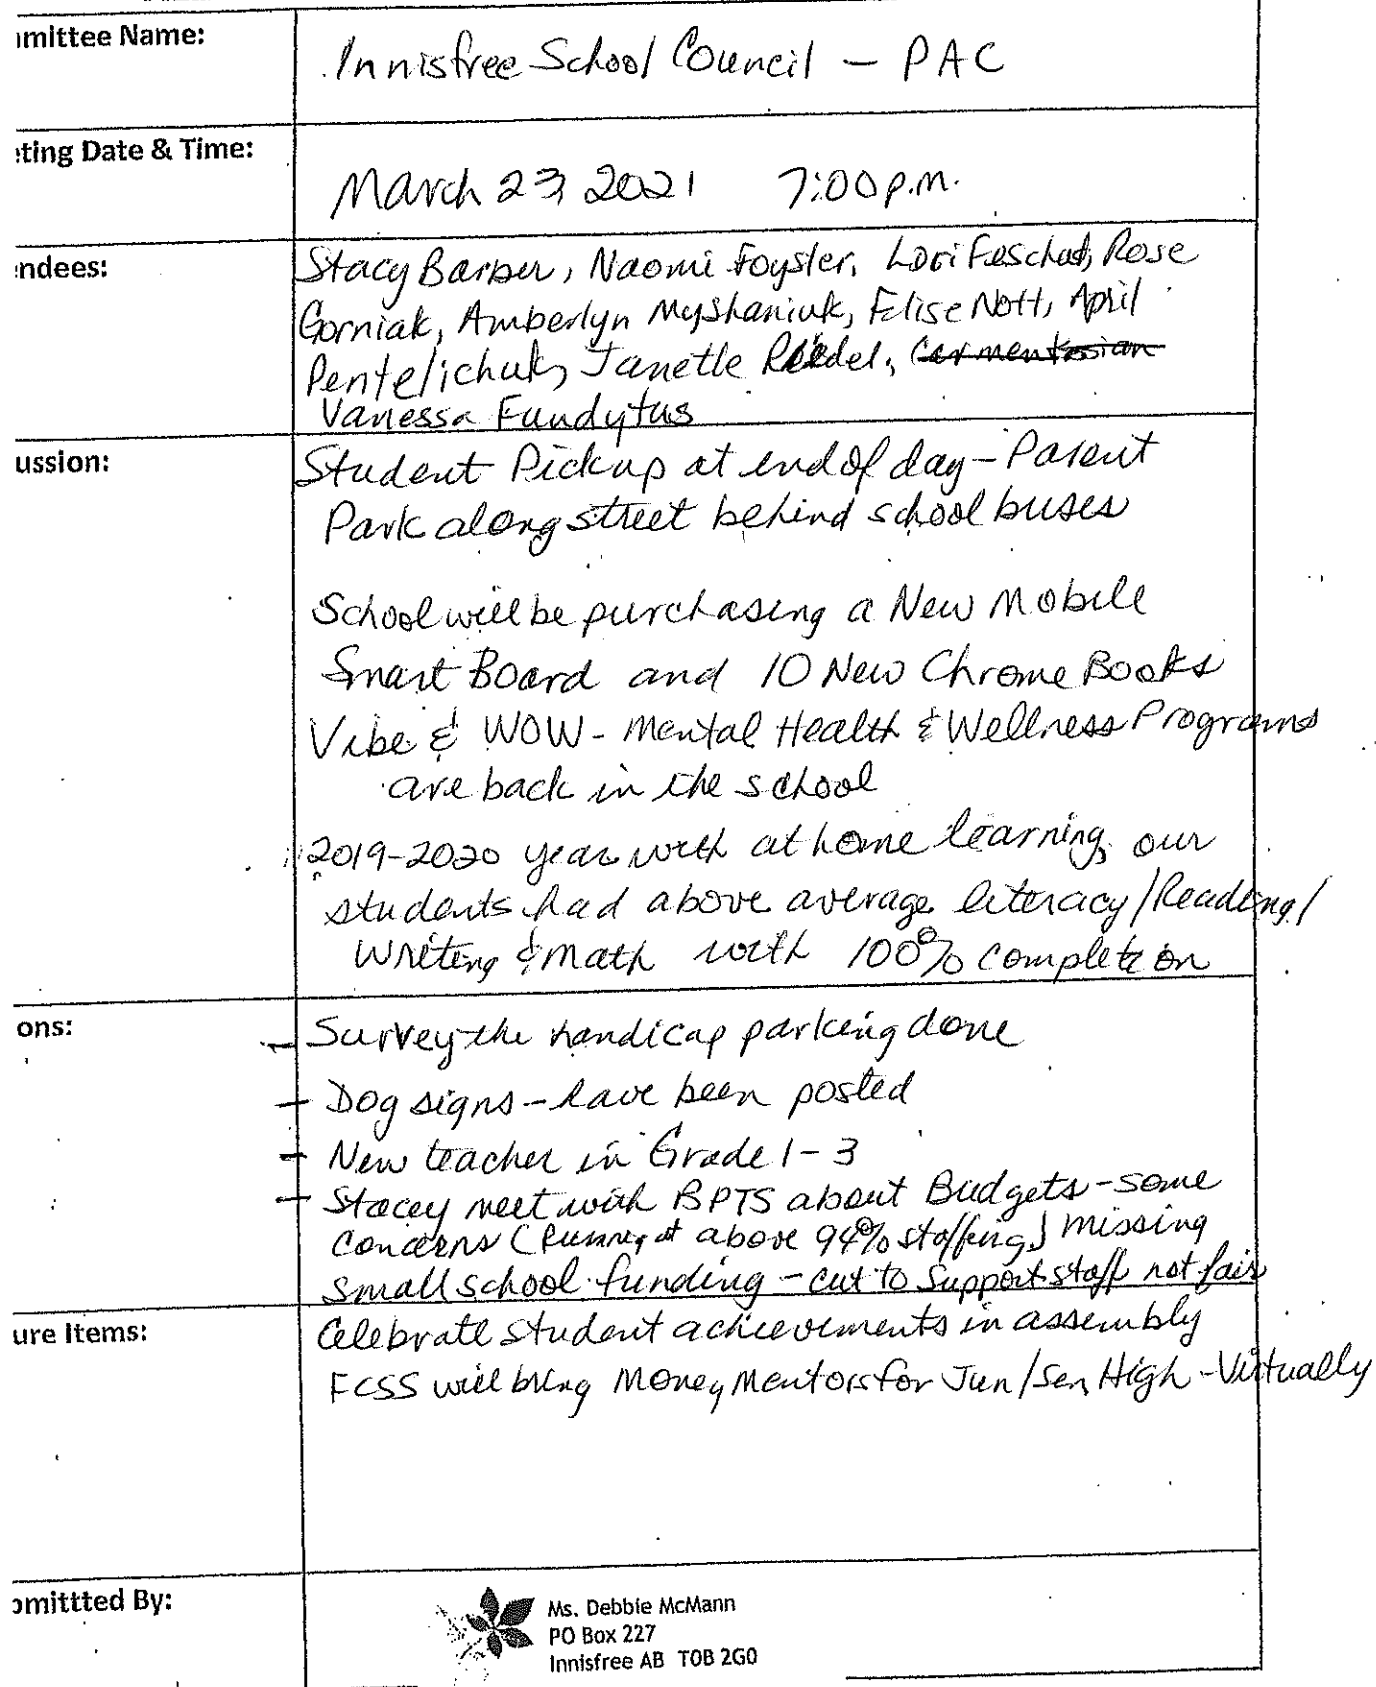 mmittee Name:
Innisfree School Council - PAC
eting Date & Time:
March 23, 2021 7:00 p.m.
endees:
Stacy Barber, Naomi Foyster, Lori Feschuk, Rose
Gorniak, Amberlyn Myshaniuk, Felise Nott, April
Pentelichuk, Janette Riedel,
Vanessa Fundytus
ussion:
Student Pickup at end of day - Parent
Park along street behind school buses
School will be purchasing a New Mobile
Smart Board and 10 New Chrome Books
Vibe & WOW - Mental Health & Wellness Programs
are back in the school
2019-2020 year with at home learning, our
students had above average literacy/Reading/
Writing & Math with 100% completion
ons:
- Survey the handicap parking done
- Dog signs - have been posted
- New teacher in Grade 1-3
- Stacey meet with BPTS about Budgets - some
concerns (Running at above 94% staffing) missing
small school funding - cut to support staff not fair
ure Items:
Celebrate student achievements in assembly
FCSS will bring Money Mentors for Jun/Sen High - Virtually
omittted By:
Ms. Debbie McMann
PO Box 227
Innisfree AB T0B 2G0